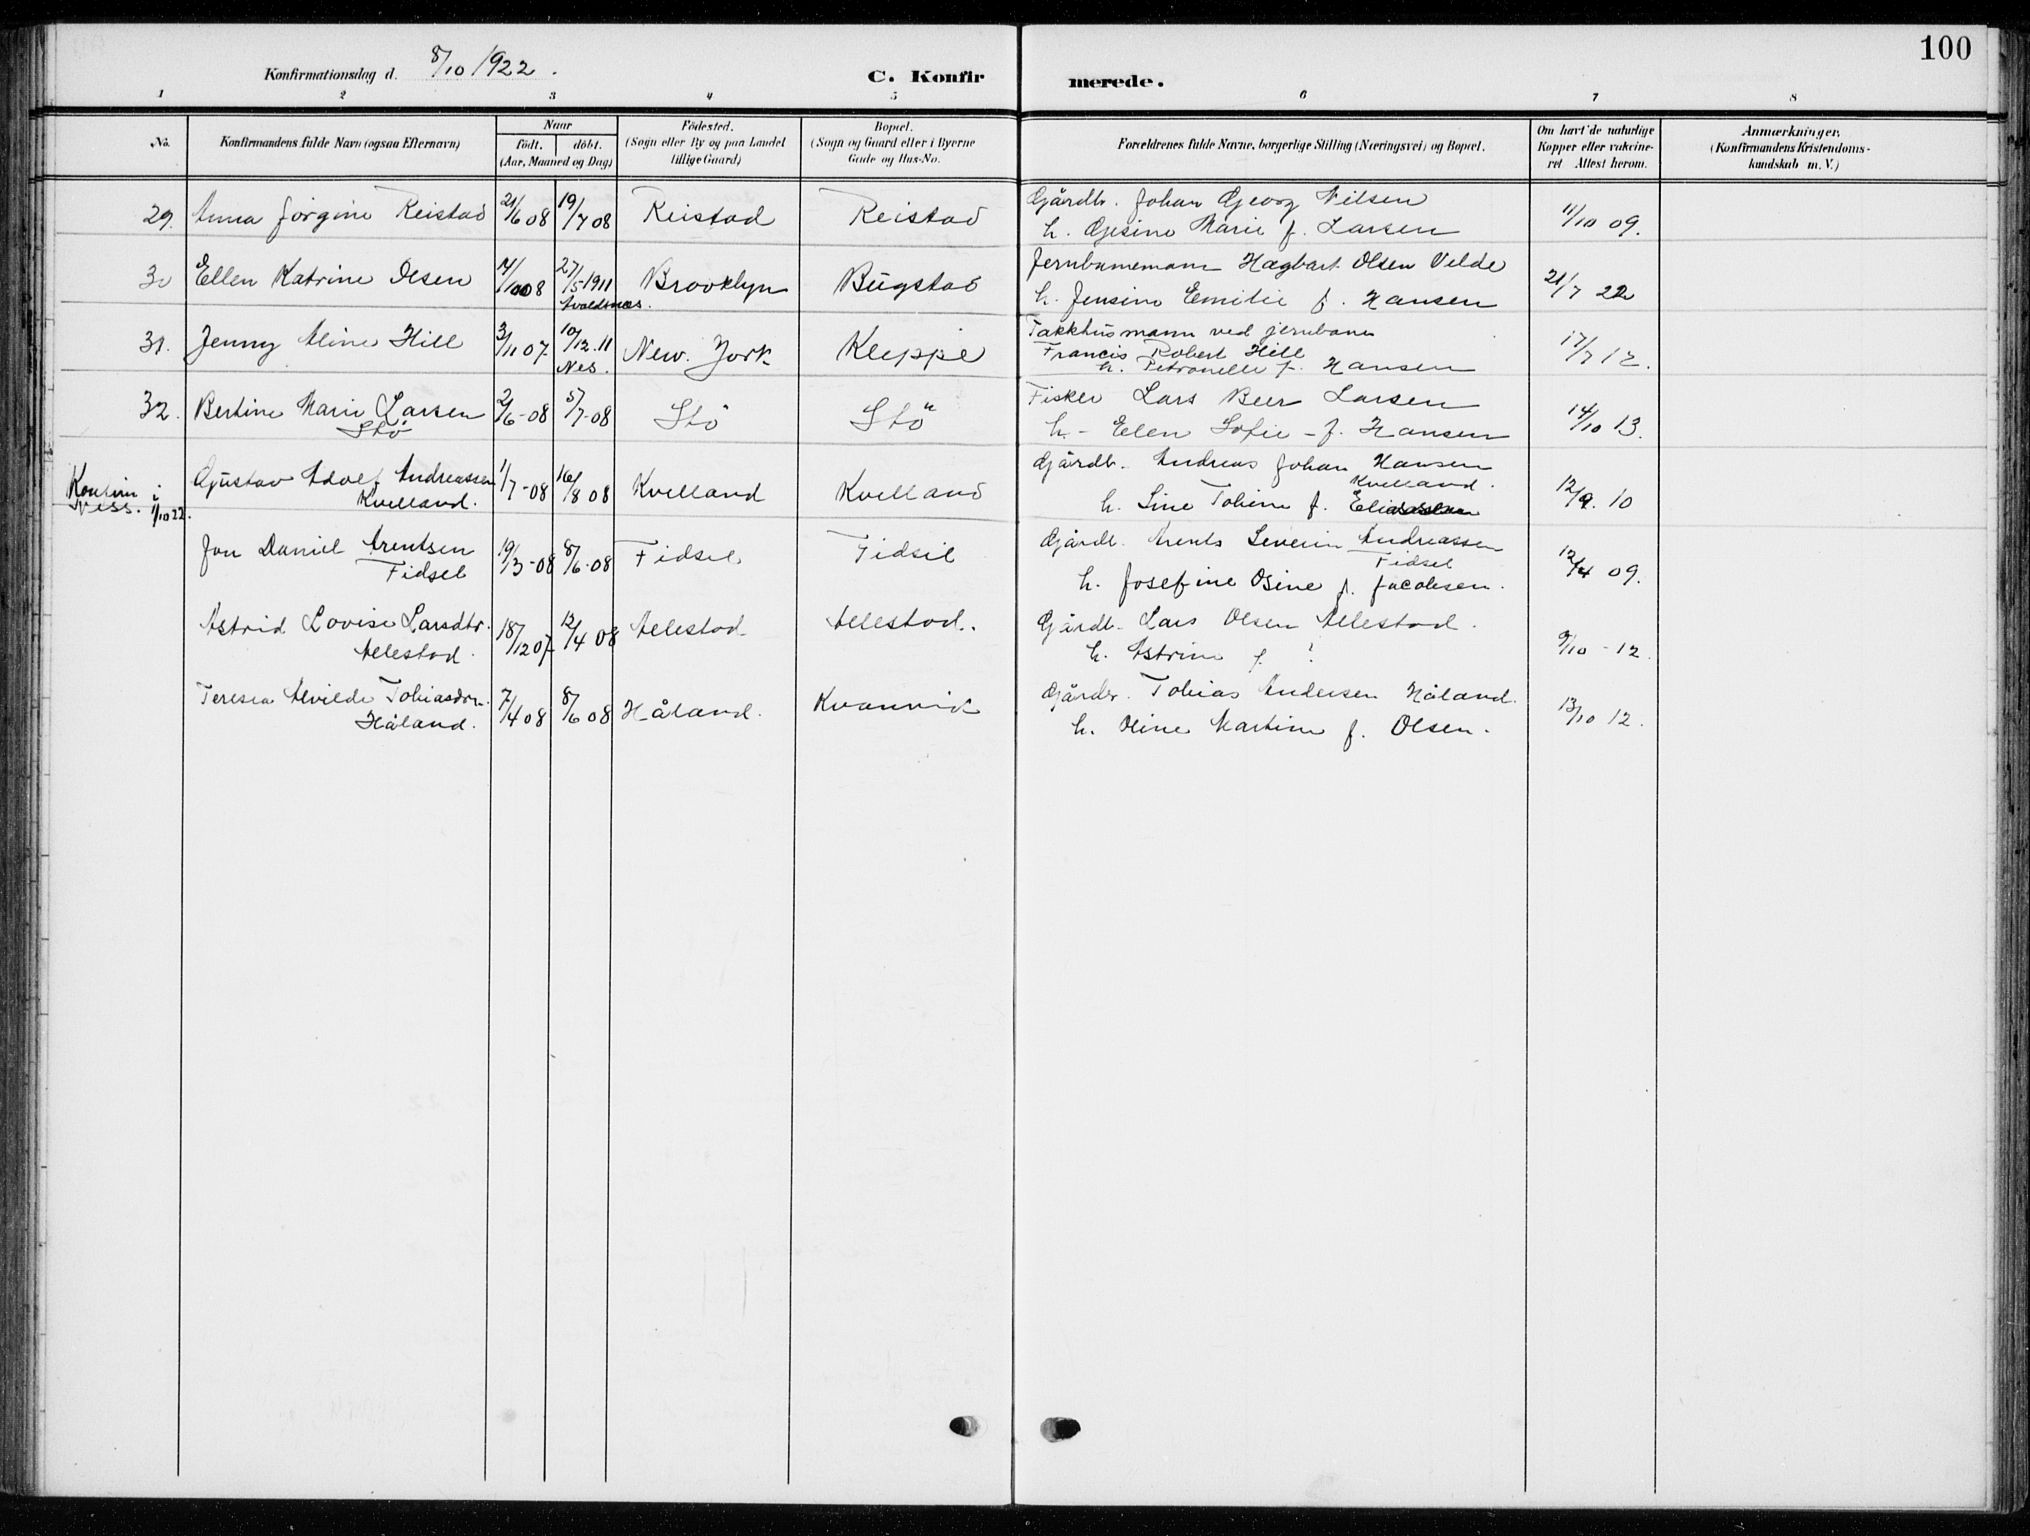 100
Konfirmationsdag d. 8/10 1922.
C. Konfir merede.
1 2 3 4 5 6 7 8
No.
Konfirmandens fulde Navn (ogsaa Efternavn)
Naar
födt. döbt.
(Aar, Maaned og Dag)
Födested.
(Sogn eller By og paa Landet
tillige Gaard)
Bopæl.
(Sogn og Gaard eller i Byerne
Gade og Hus-No.
Forældrenes fulde Navne, borgerlige Stilling (Næringsvei) og Bopæl.
Om havt de naturlige
Kopper eller vakcine-
ret Attest herom.
Anmærkninger.
(Konfirmandens Kristendoms-
kundskab m. V.)
29. Anna Jørgine Reistad 21/6 08 19/7 08 Reistad Reistad Gårdb. Johan Georg Nilsen
h. Gesine Marie f. Larsen 11/10 09.
30 Ellen Katrine Olsen 27/5-1911 Brooklyn Bugstad Jernbanemann Hagbart Olsen Velde
Avaldsnes.
h. Jensine Emilie f. Hansen 21/7 22
31. Jenny Aline Hill 3/11 07 10/12.11 New. York Kleppe Takkhusmann ved jernbane
Nes.
Francis Robert Hill
h. Petronelle f. Hansen 17/7 12.
32. Bertine Marie Larsen 2/6-08 5/7-08 Stö Stö Fisker Lars Beer Larsen
Stö
h - Elen Sofie - f. Hansen 14/10 13.
Konfirm i
Ness. 1/10 22.
Gustav Adolf Andreassen 1/7-08 16/8 08 Kvelland Kvelland Gårdb. Andreas Johan Hansen
Kvelland. Kvelland.
h. Sine Tobine f. Eliassen 12/9. 10
Jon Daniel Arentsen 19/3-08 8/6-08 Fidsel Fidsel Gårdb. Arents Severin Andreassen
Fidsel Fidsel
h. Josefine Osine f. Jacobsen. 12/4 09.
Astrid Lovise Larsdtr. 18/12 07 12/4 08 Allestad Allestad. Gårdb. Lars Olsen Allestad.
Allestad.
h. Astrine f. ? 9/10-12.
Teresea Alvilde Tobiasdtr. 7/4 08 8/6 08 Håland. Kvanvik Gårdbr. Tobias Andersen Håland.
Håland.
h. Oline Martine f. Olsen. 13/10 12.